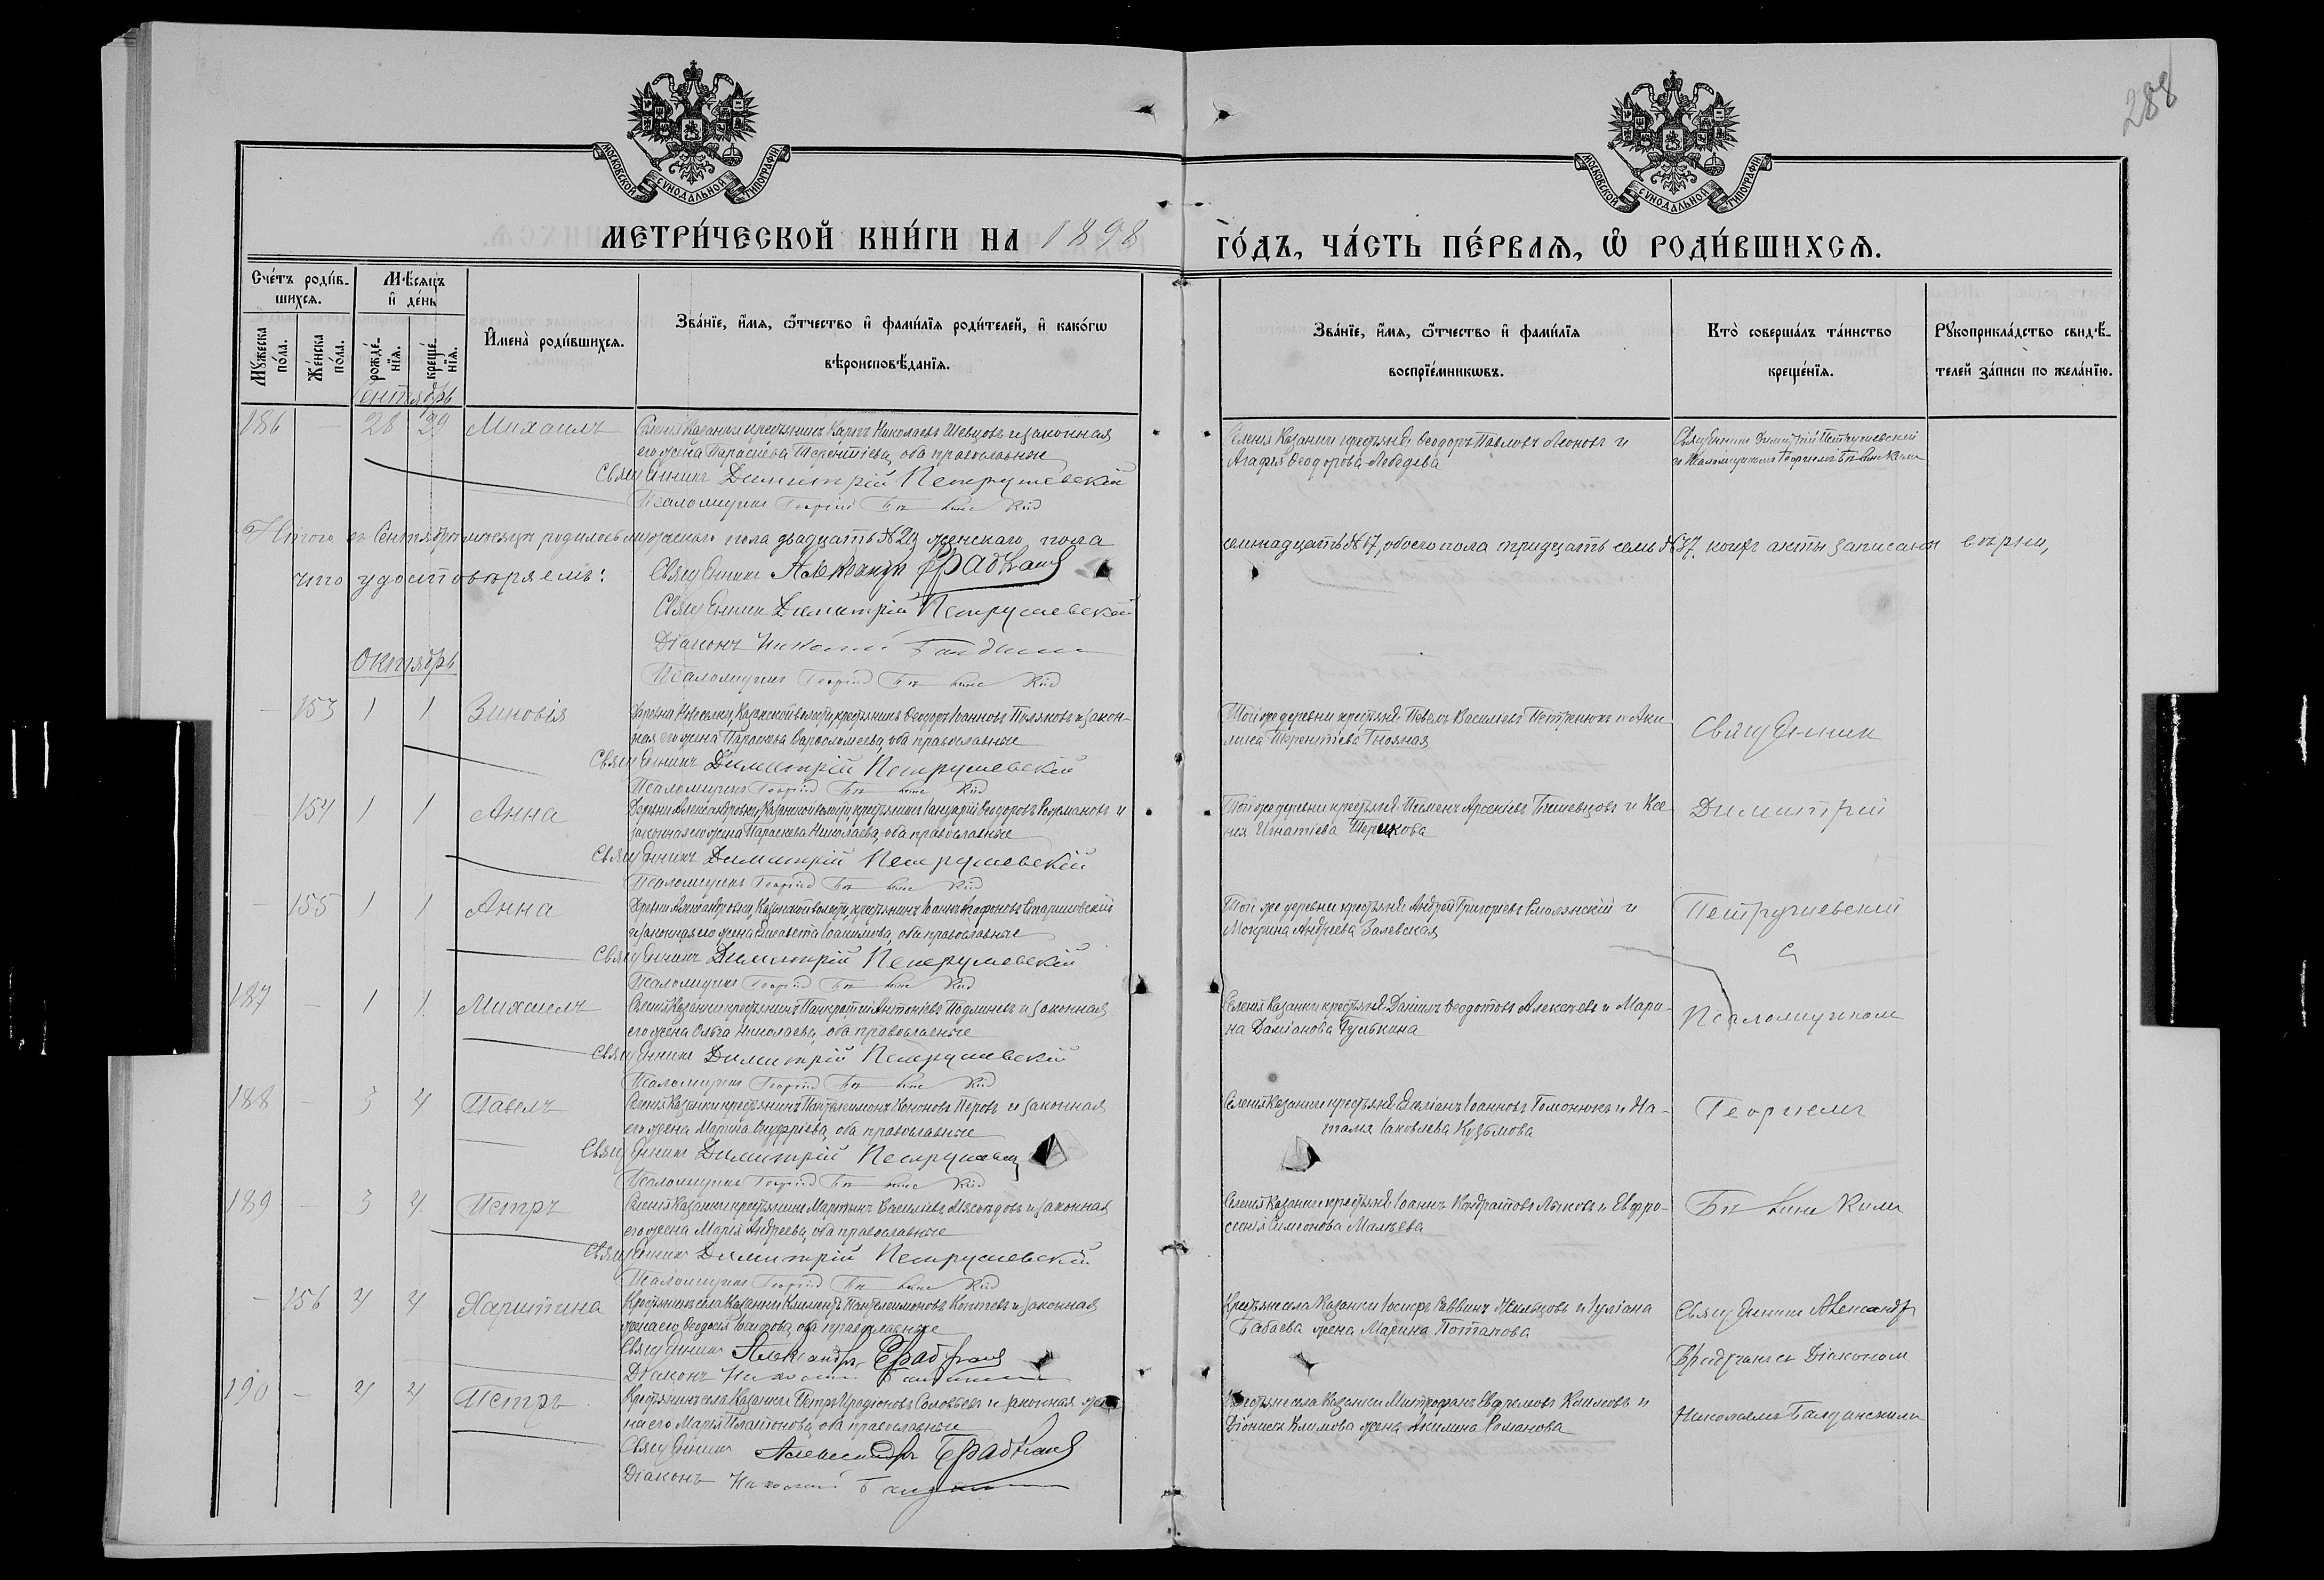 288
МОСКОВСКОЙ СУНОДАЛЬНОЙ ТИПОГРАФІИ
МОСКОВСКОЙ СУНОДАЛЬНОЙ ТИПОГРАФІИ
МЕТРИ́ЧЕСКОЙ КНИ́ГИ НА 1898
ГО́ДЪ, ЧА́СТЬ ПЕ́РВАЯ, Ѽ РОДИ́ВШИХСЯ.
Сче́тъ роди́в-
шихся.
Мѣ́сяцъ
и҆ де́нь
Му́жеска по́ла.
Же́нска по́ла.
рожде́-
нїя.
креще́-
нїя.
И҆мена̀ роди́вшихся.
Зва́нїе, и҆́мя, ѻ҆́тчество и҆ фами́лїя роди́телей, и҆ како́гѡ
вѣроисповѣ́данїя.
Зва́нїе, и҆́мя, ѻ҆́тчество и҆ фами́лїя
воспрїе́мникѡвъ.
Кто̀ соверша́лъ та́инство
креще́нїя.
Рꙋкоприкла́дство свидѣ́-
телей за́писи по жела́нїю.
Сентябрь
186 - 28 29 Михаилъ
Селенія Казанки крестьянинъ Карпъ Николаевъ Шевцовъ и законная
его жена Параскева Терентіева, оба православные
Священникъ Димитрій Петрушевскій
Псаломщикъ Георгій
Селенія Казанки крестьяне Ѳеодоръ Павловъ Леоновъ и
Агафія Ѳеодорова Лебедева
Священникъ Димитрій Петрушевскій
съ Псаломщикомъ Георгіемъ
Итого въ Сентябрѣ мѣсяцѣ родилось мужескаго пола двадцать № 20 женскаго пола
семнадцать № 17, обоего пола тридцать семь № 37, коихъ акты записаны вѣрно,
что удостовѣряемъ:
Священникъ Александръ
Священникъ Димитрій Петрушевскій
Діаконъ Николай
Псаломщикъ Георгій
Октябрь
- 153 1 1 Зиновія
Казанской волости, крестьянинъ Ѳеодоръ Іоанновъ Поляковъ и закон-
ная его жена Параскева Варѳоломеева, оба православные
Священникъ Димитрій Петрушевскій
Псаломщикъ Георгій
Той же деревни крестьяне Павелъ Василіевъ и Аки-
лина Терентіева Гноянная
Священникъ
154 1 1 Анна
Деревни Александровки, Казанской волости, крестьянинъ Іануарій Ѳеодоровъ и
законная его жена Параскева Николаева, оба православные
Священникъ Димитрій Петрушевскій
Псаломщикъ Георгій
Той же деревни крестьяне Пименъ Арсеніевъ и Ксе-
нія Игнатіева
Димитрій
- 155 1 1 Анна
Деревни Александровки, Казанской волости, крестьянинъ Іоаннъ Агафоновъ
и законная его жена Елисавета Іоакимова, оба православные
Священникъ Димитрій Петрушевскій
Псаломщикъ Георгій
Той же деревни крестьяне Андрей Григоріевъ Смолянскій и
Мокрина Андреева Залевская
Петрушевскій
съ
187 - 1 1 Михаилъ
Селенія Казанки крестьянинъ Панкратій Антоніевъ и законная
его жена Ольга Николаева, оба православные
Священникъ Димитрій Петрушевскій
Псаломщикъ Георгій
Селенія Казанки крестьяне Даніилъ Ѳеодотовъ Алексѣевъ и Мари-
на Даміанова Гулькина
Псаломщикомъ
188 - 3 4 Павелъ
Селенія Казанки крестьянинъ Пантелеимонъ Кононовъ Перовъ и законная
его жена Марина Онуфріева, оба православные
Священникъ Димитрій
Псаломщикъ Георгій
Селенія Казанки крестьяне Іоанновъ Гомонюкъ и На-
талія Іаковлева Кузьмова
Георгіемъ
189 - 3 4 Петръ
Селенія Казанки крестьянинъ Мартынъ Василіевъ Мясоѣдовъ и законная
его жена Марія Андреева, оба православные
Священникъ Димитрій Петрушевскій
Псаломщикъ Георгій
Селенія Казанки крестьяне Іоаннъ Кондратовъ Лыковъ и Евфро-
синія Симеонова Малѣева
- 156 4 4 Харитина
Крестьянинъ села Казанки Климентъ Пантелеимоновъ и законная
жена его Ѳеодосія Іосифова, оба православные
Священникъ Александръ
Діаконъ Николай
Крестьяне села Казанки Іосифъ Саввинъ и Іуліана
Бабаева жена Марина Потапова
Священникъ Александръ
съ Діакономъ
190 - 4 4 Петръ
Крестьянинъ села Казанки Петръ Иродіоновъ Соловьевъ и законная же-
на его Марія Платонова, оба православные
Священникъ Александръ
Діаконъ Николай
Крестьяне села Казанки Митрофанъ Ефремовъ Климовъ и
Діонисія Климова жена Акилина Романова
Николаемъ